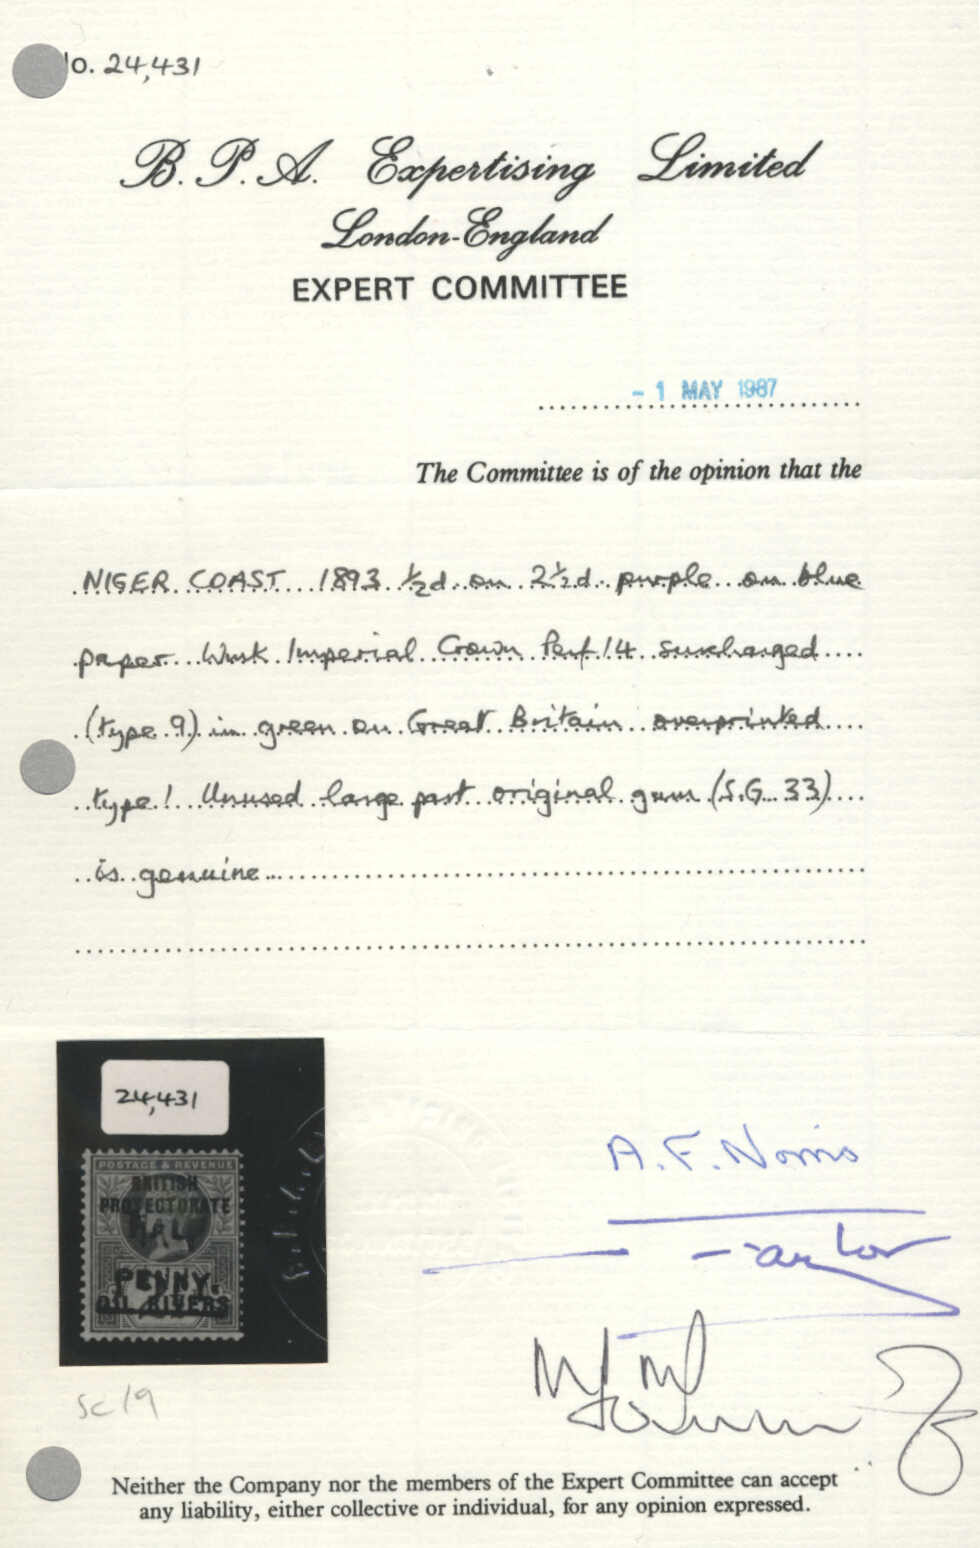 No. 24,431
B. P. A. Expertising Limited
London-England
EXPERT COMMITTEE
- 1 MAY 1987
The Committee is of the opinion that the
NIGER COAST 1893 ½d on 2½d purple on blue
paper Wmk Imperial Crown Perf 14 surcharged
(type 9) in green on Great Britain overprinted
type 1 Unused large part original gum (S.G. 33)
is genuine
24,431
POSTAGE & REVENUE
BRITISH
PROTECTORATE
HALF
PENNY.
OIL RIVERS
A. F. Norris
Sc 19
Neither the Company nor the members of the Expert Committee can accept
any liability, either collective or individual, for any opinion expressed.